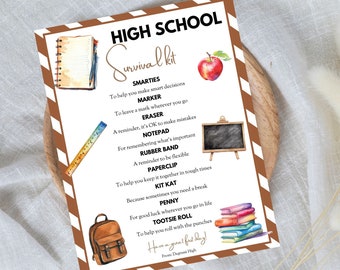 HIGH SCHOOL
Survival kit
SMARTIES
To help you make smart decisions
MARKER
To leave a mark wherever you go
ERASER
A reminder, it's OK to make mistakes
NOTEPAD
For remembering what's important
RUBBER BAND
A reminder to be flexible
PAPERCLIP
To help you keep it together in tough times
KIT KAT
Because sometimes you need a break
PENNY
For good luck wherever you go in life
TOOTSIE ROLL
To help you roll with the punches
Have a great first day!
From: Dupont High